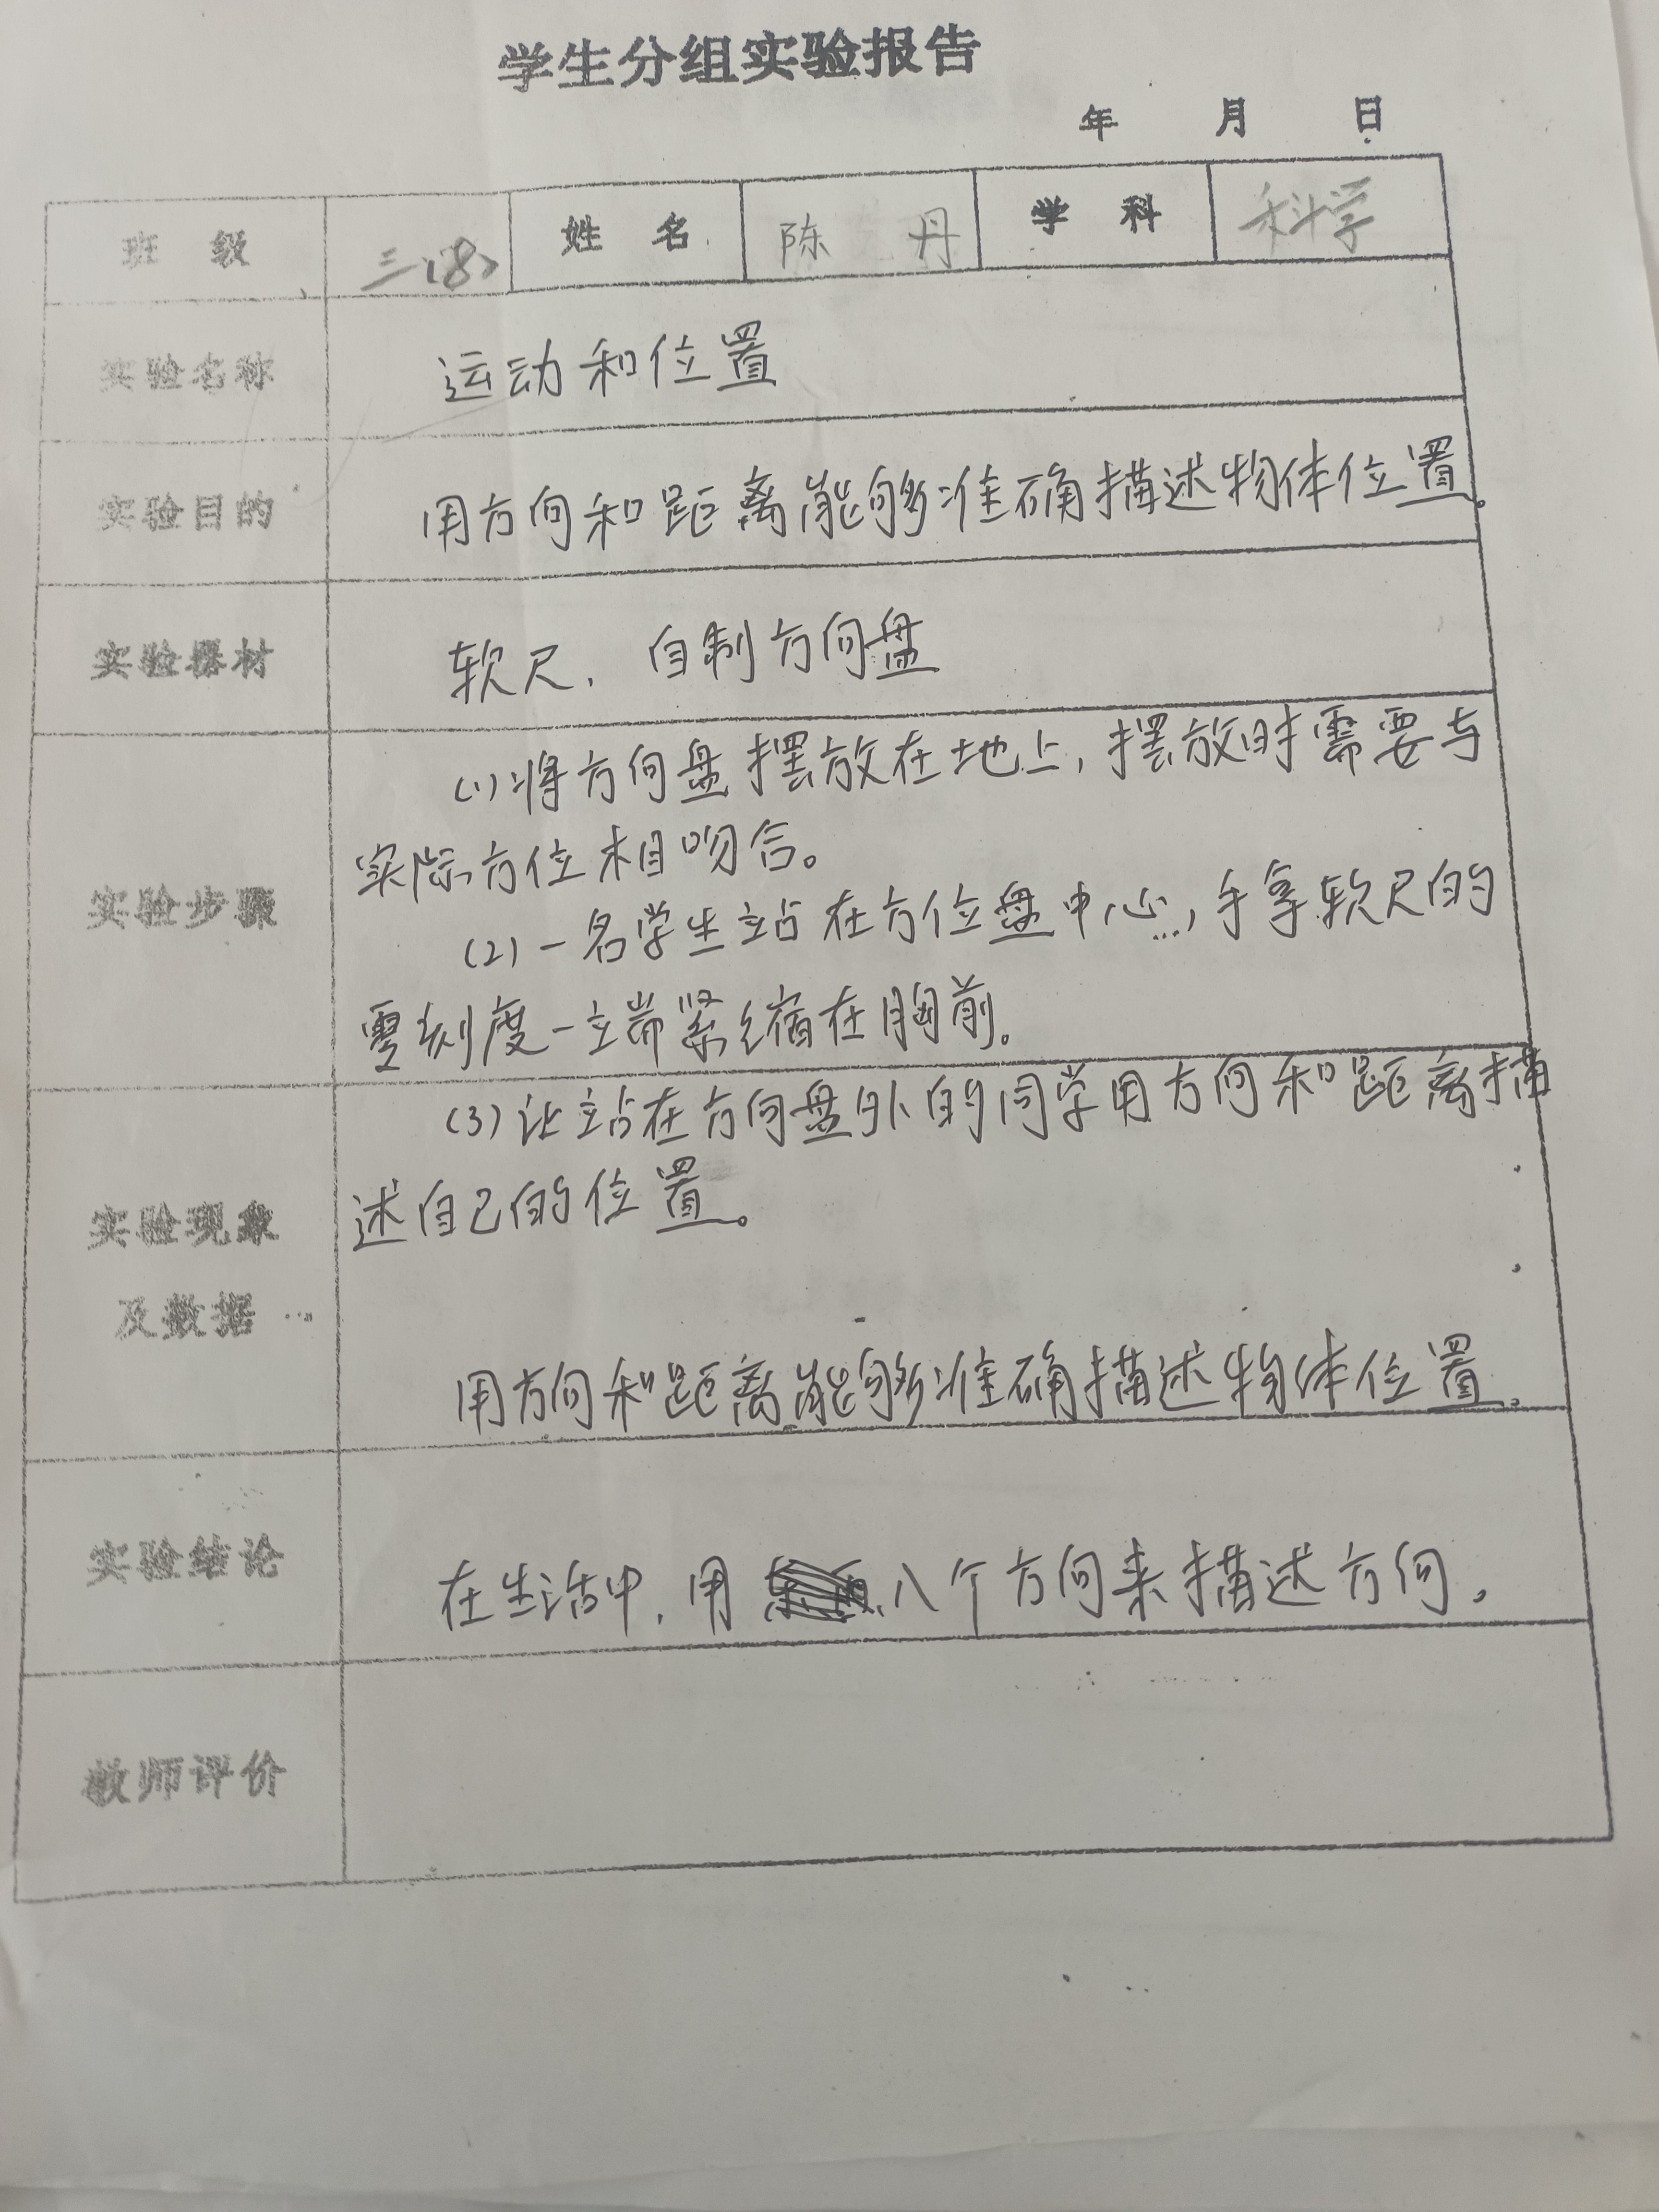 学生分组实验报告
年 月 日
班 级 三(8) 姓 名 陈 丹 学 科 科学
实验名称 运动和位置
实验目的 用方向和距离能够准确描述物体位置。
实验器材 软尺,自制方向盘
(1)将方向盘摆放在地上,摆放时需要与
实际方位相吻合。
实验步骤
(2)一名学生站在方位盘中心,手拿软尺的
零刻度一端紧缩在胸前。
(3)让站在方向盘外的同学用方向和距离描
述自己的位置。
实验现象
及数据
用方向和距离能够准确描述物体位置。
实验结论 在生活中,用八个方向来描述方向。
教师评价